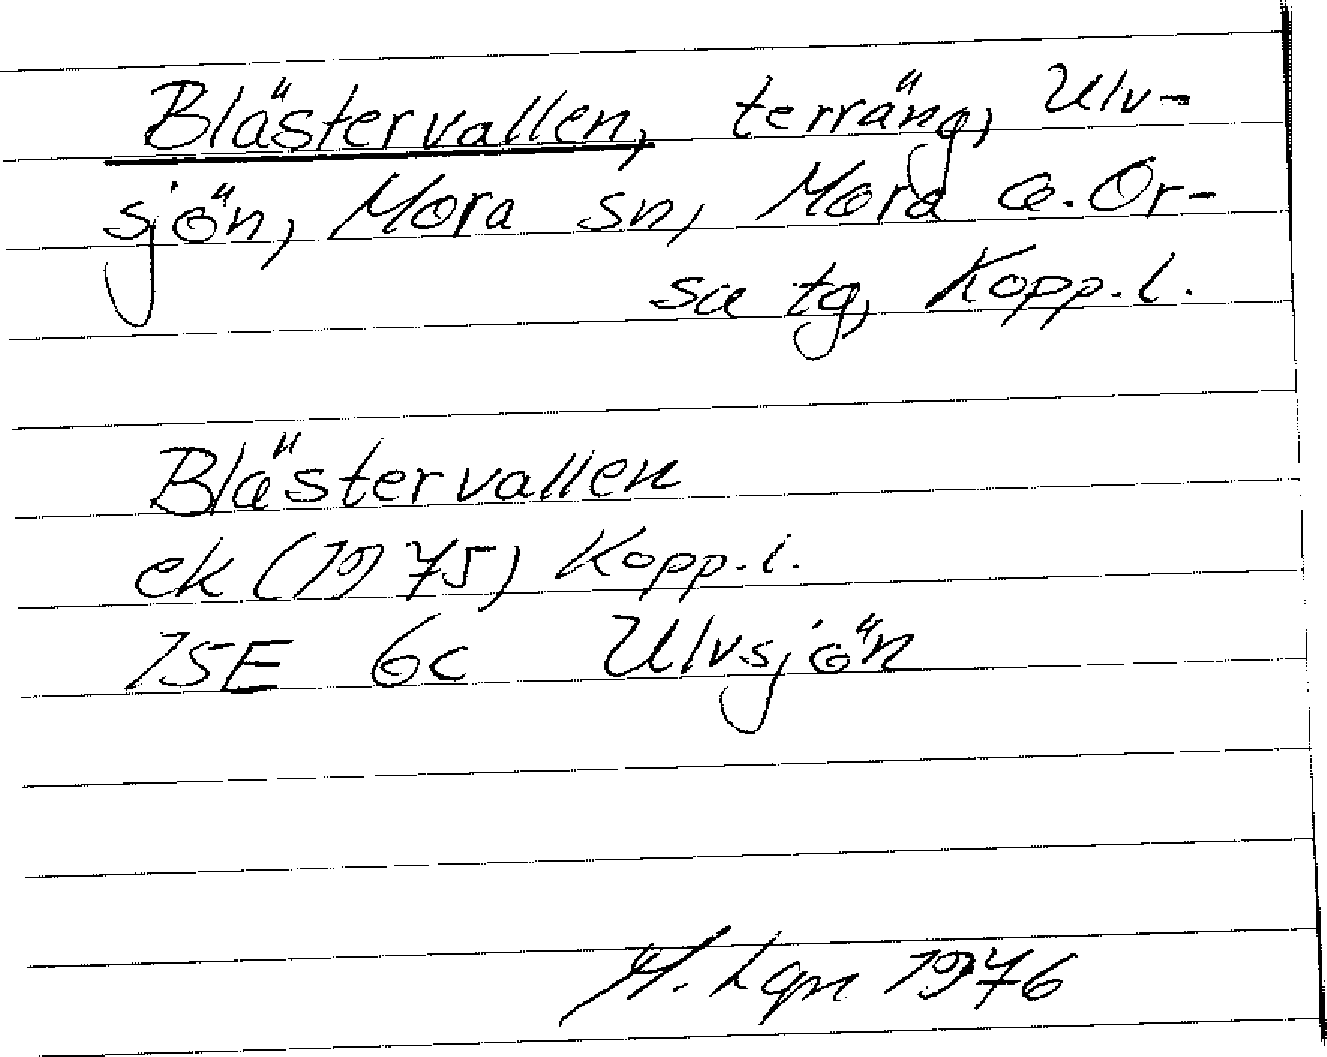 Blästervallen, terräng, Ulv-
sjön, Mora sn, Mora o. Or-
sa tg, Kopp. l.
Blästervallen
ek (1975) Kopp. l.
15E 6c Ulvsjön
H. Lgn 1976